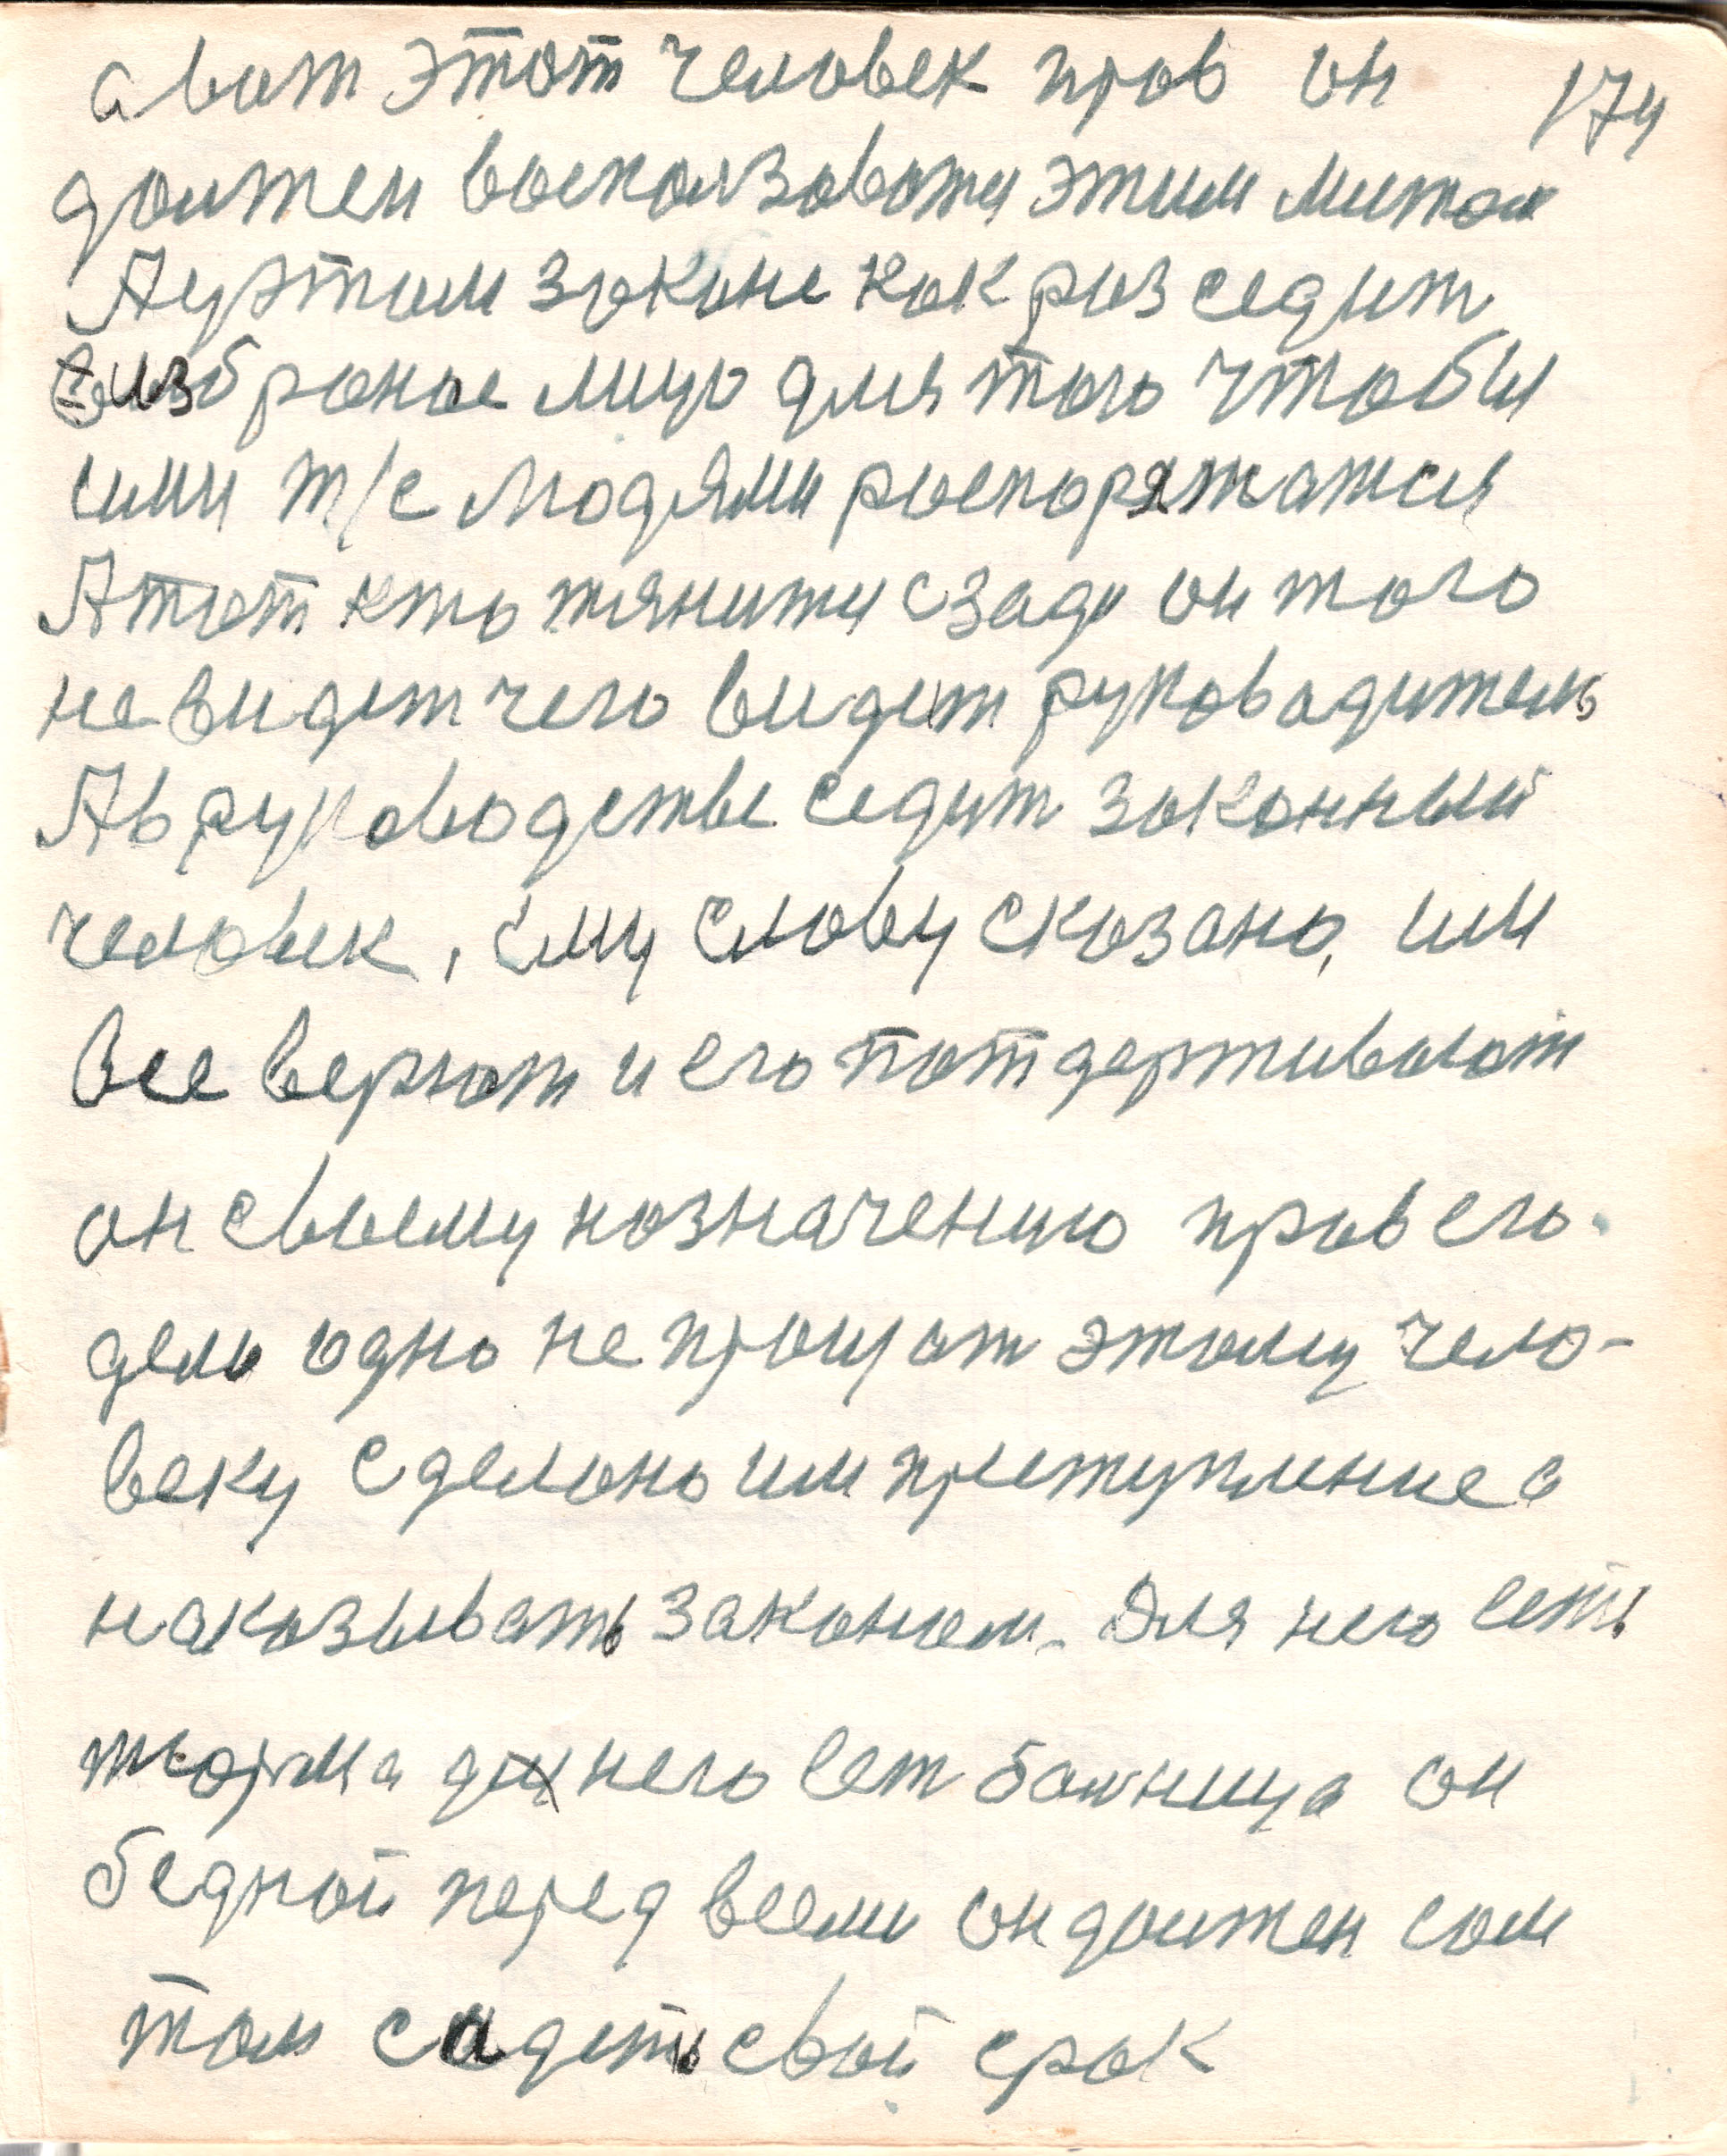 а вот этот человек прав он 174
должен воспользоваты этим митом
А у этом законе как раз седит
избраное лицо для того чтобы
ими т/е людями распоряжатся
А тот кто тяниты сзади он того
не видет чего видет руководитель
А в руководстве седит законный
человек, ему слову сказано, им
все верют и его потдерживают
он своему назначению прав его
дело одно не прощат этому чело-
веку сделано им преступление а
наказывать законом. Для него есть
тюрма для него ест болница он
бедной перед всеми он должен сам
там садеть свой срок